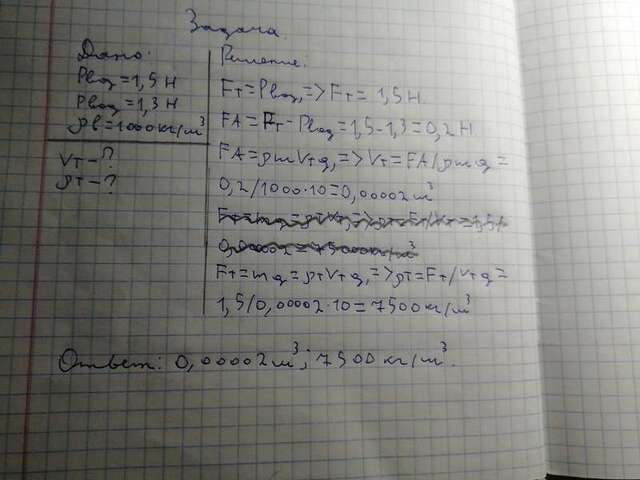 Задача
Дано:
Pвоз=1,5 Н
Pвод=1,3 Н
ρв=1000 кг/м³
Vт-?
ρт-?
Решение:
Fт=Pвоз,=>Fт= 1,5 Н.
FA=Fт-Pвод=1,5-1,3=0,2 Н.
FA=ρжVтg,=>Vт=FA/ρжg=
0,2/1000·10=0,00002 м³
Fт=mg=ρтVтg,=>ρт=Fт/Vтg=
1,5/0,00002·10=7500 кг/м³
Ответ: 0,00002 м³; 7500 кг/м³.